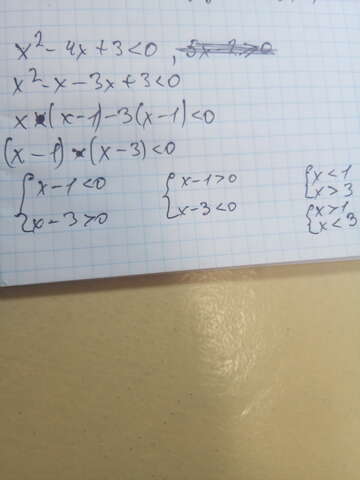 x² - 4x + 3 < 0 ,
x² - x - 3x + 3 < 0
x • (x - 1) - 3(x - 1) < 0
(x - 1) • (x - 3) < 0
{ x - 1 < 0 { x - 1 > 0 { x < 1
x - 3 > 0 x - 3 < 0 x > 3
{ x > 1
x < 3